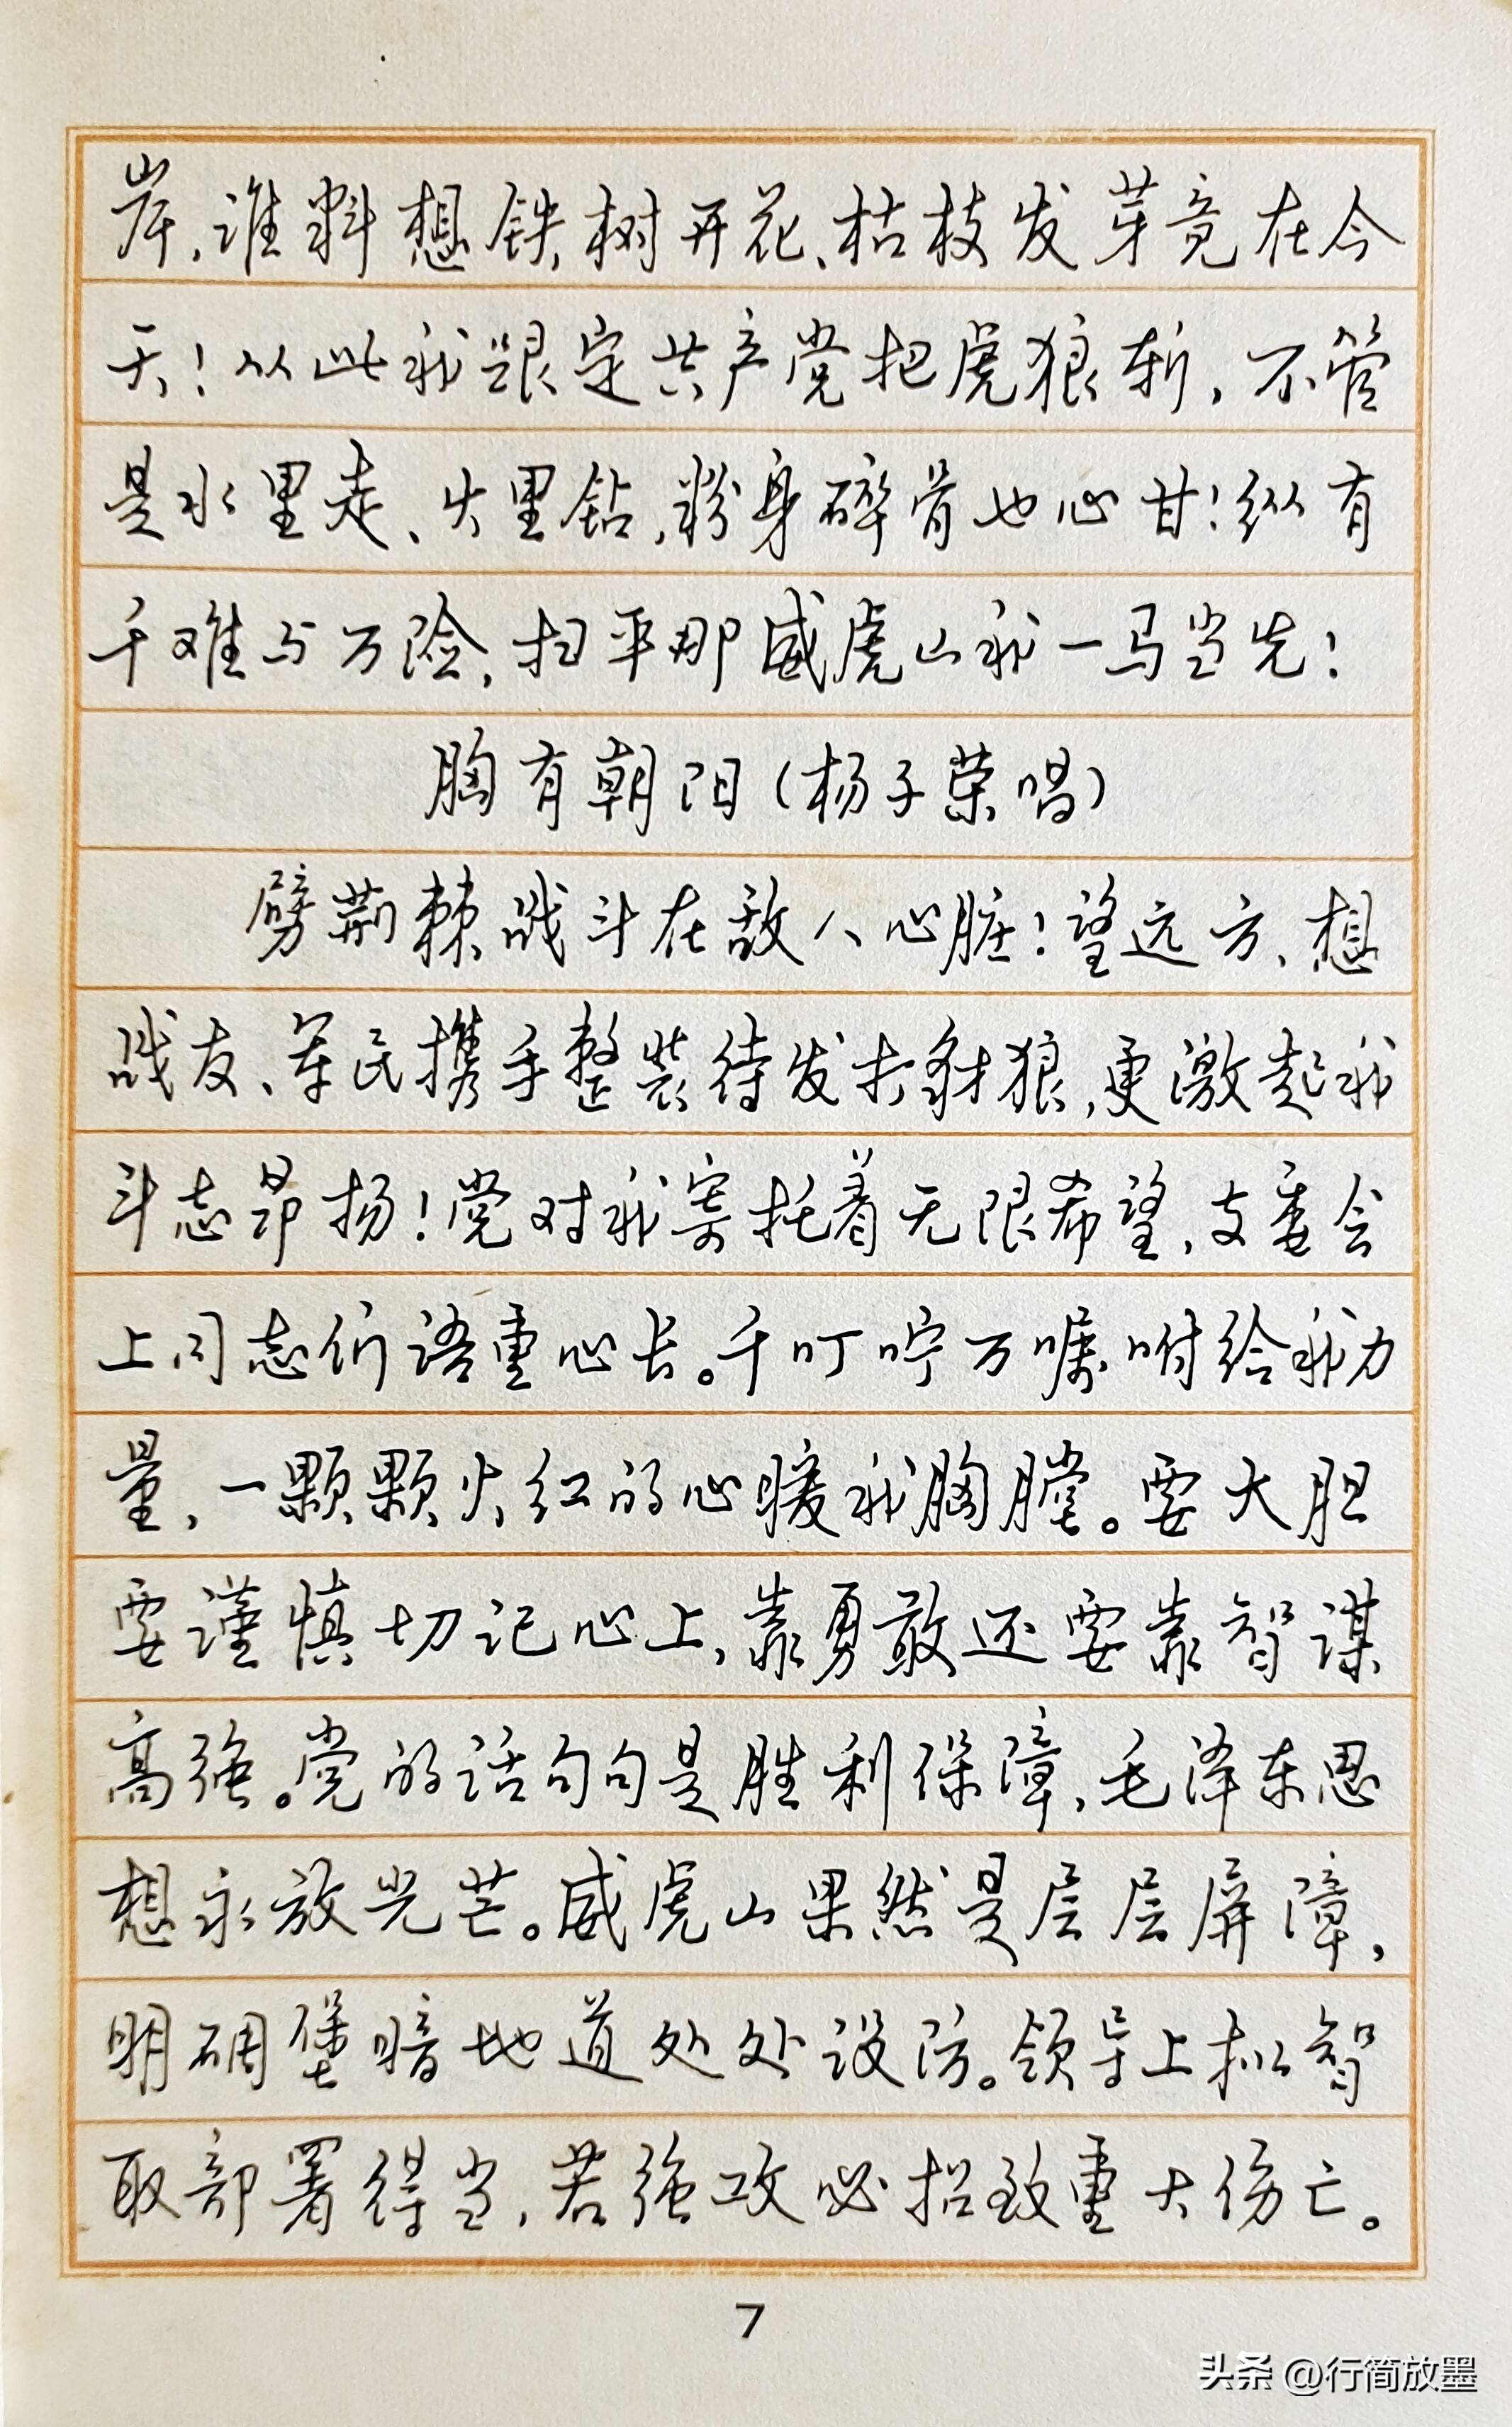 岸,谁料想铁树开花、枯枝发芽竟在今
天!从此我跟定共产党把虎狼斩,不管
是水里走、火里钻,粉身碎骨也心甘!纵有
千难与万险,扫平那威虎山我一马当先!
胸有朝阳(杨子荣唱)
劈荆棘战斗在敌人心脏!望远方、想
战友、军民携手整装待发打豺狼,更激起我
斗志昂扬!党对我寄托着无限希望,支委会
上同志们语重心长。千叮咛万嘱咐给我力
量,一颗颗火红的心暖我胸膛。要大胆
要谨慎切记心上,靠勇敢还要靠智谋
高强。党的话句句是胜利保障,毛泽东思
想永放光芒。威虎山果然是层层屏障,
明碉堡暗地道处处设防。领导上拟智
取部署得当,若强攻必招致重大伤亡。
7
头条 @行简放墨